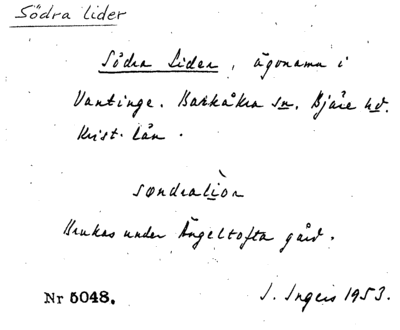 Södra lider
Södra Lider, ägonamn i
Vantinge. Barkåkra sn. Bjäre hd.
Krist. län.
søndralìor
Brukas under Ängeltofta gård.
Nr 5048. I. Ingers 1953.